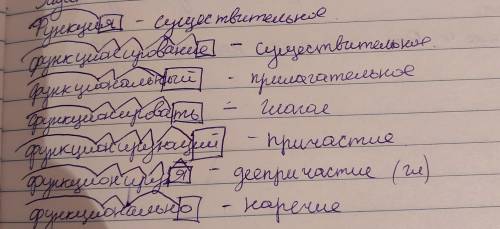 Функция - существительное
функционирование - существительное.
функциональный - прилагательное
функционировать - глагол
функционирующий - причастие
функционируя - деепричастие (гл)
функционально - наречие